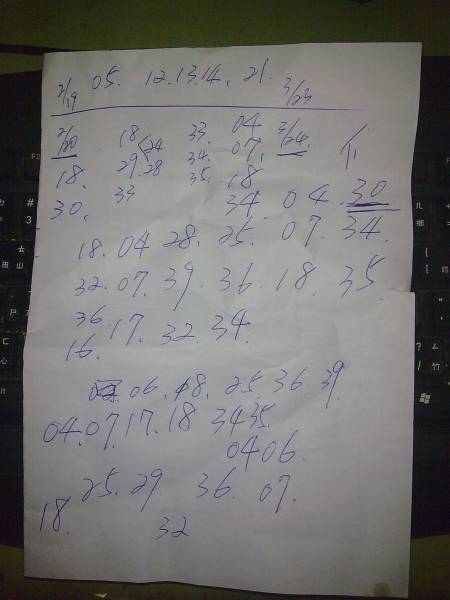 2/19 05. 12.13.14. 21. 3/23
2/20 18 24 33. 04 3/24.
18. 29 28 34. 07.
30. 33 35. 18
34 04 30
18. 04 28. 25. 07. 34.
32. 07. 39. 36. 18. 35.
36. 17. 32. 34.
16.
06. 18. 25. 36. 39.
04. 07. 17. 18 34 35.
04 06.
25. 29. 36. 07.
18. 32